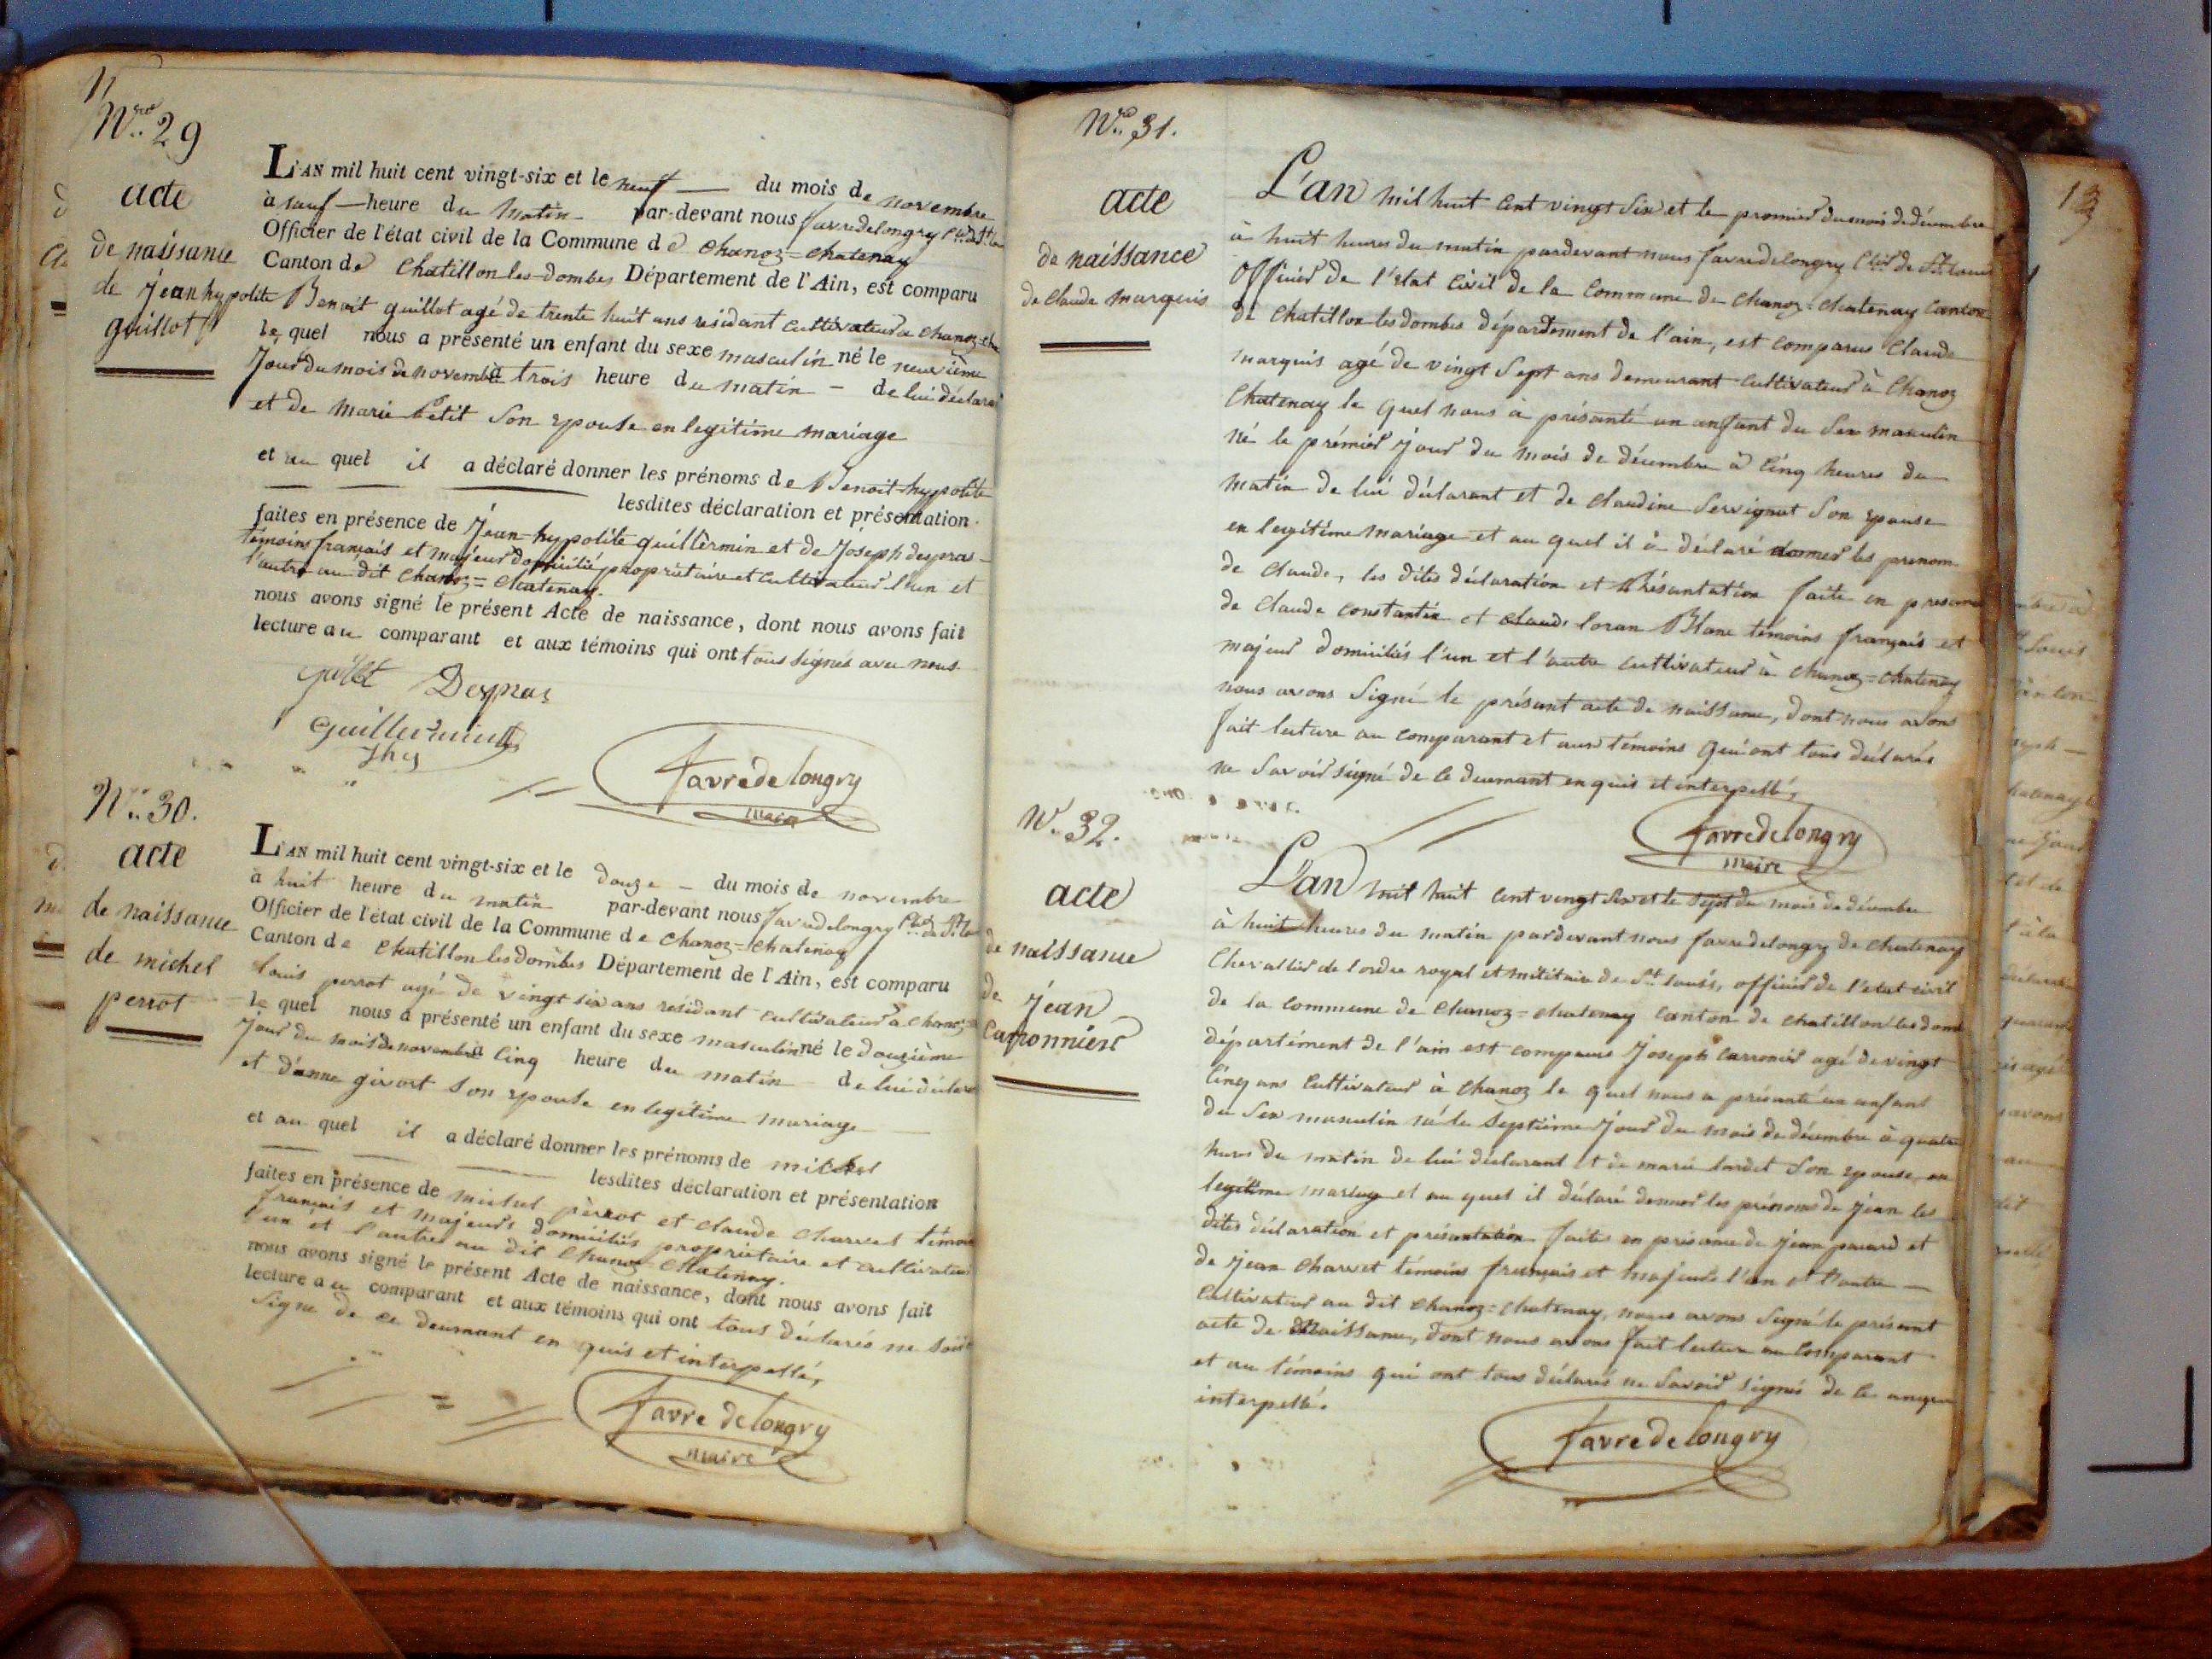 Nro 29
acte
de naissance
de jean hypolite
guillot
L'AN mil huit cent vingt-six et le neuf du mois de novembre
à sauf heure du matin par-devant nous favredelongry
Officier de l'état civil de la Commune de chanoz=chatenay
Canton de Chatillon les dombes Département de l'Ain, est comparu
Benoit guillot agé de trente huit ans résidant cultivateur a chanoz
le quel nous a présenté un enfant du sexe masculin né le neuvième
jour du mois de novembre à trois heure du matin de lui déclara
et de marie petit son epouse en legitime mariage
et au quel il a déclaré donner les prénoms de Benoit hypolite
lesdites déclaration et présentation
faites en présence de jean-hypolite guillermin et de joseph despras
témoins français et majeur domicilié propriétaire et cultivateur l'un et
l'autre au dit chanoz=chatenay.
nous avons signé le présent Acte de naissance, dont nous avons fait
lecture au comparant et aux témoins qui ont tous signés avec nous
Despras
favre de longry
maire
No 30.
acte
de naissance
de michel
perrot
L'AN mil huit cent vingt-six et le douze du mois de novembre
à huit heure du matin par-devant nous favredelongry
Officier de l'état civil de la Commune de chanoz=chatenay
Canton de chatillon les dombes Département de l'Ain, est comparu
louis perrot agé de vingt six ans residant cultivateur à chanoz
le quel nous a présenté un enfant du sexe masculin né le douzième
jour du mois de novembre à cinq heure du matin de lui déclara
et d'anne givort son epouse en legitime mariage
et au quel il a déclaré donner les prénoms de michel
lesdites déclaration et présentation
faites en présence de michel perrot et claude charvet témoin
français et majeurs domiciliés propriétaire et cultivateur
l'un et l'autre au dit chanoz chatenay.
nous avons signé le présent Acte de naissance, dont nous avons fait
lecture au comparant et aux témoins qui ont tous déclarés ne
signe de ce deumant en quis et interpellé,
favre de longry
maire
Nro 31.
acte
de naissance
de claude marquis
L'an mil huit cent vingt six et le premier du mois de décembre
à huit heures du matin pardevant nous favredelongry de St. louis
officier de l'état civil de la commune de chanoz-chatenay canton
de chatillon les dombes département de l'ain, est comparus claude
marquis agé de vingt sept ans demeurant cultivateur à chanoz
chatenay le quel nous à présanté un anfant du sex masculin
né le prémier jour du mois de décembre à cinq heures du
matin de lui déclarant et de claudine servignat son epouse
en legitime mariage et au quel il à déclaré donner les prenom
de claude, les dites déclaration et présantation faite en presence
de claude constantin et claude loran Blanc témoins français et
majeur domiciliés l'un et l'autre cultivateur à chanoz=chatenay
nous avons signé le présant acte de naissance, dont nous avons
fait lecture au comparant et aux témoins qui ont tous déclarés
ne savoir signé de ce deumant en quis et interpellé,
favredelongry
maire
No 32.
acte
de naissance
de jean
carronnier
L'an mil huit cent vingt six et le sept du mois de décembre
à huit heures du matin pardevant nous favredelongry de chatenay
chevallier de l'ordre royal et militaire de St. louis, officier de l'etat civil
de la commune de chanoz=chatenay canton de chatillon les domb
département de l'ain est comparus joseph carronier agé de vingt
cinq ans cultivateur à chanoz le quel nous a présanté un anfant
du sex masculin né le septième jour du mois de décembre à quatre
hures du matin de lui déclarant et de marie lardet son epouse en
legitime mariage et au quel il déclaré donner les prénoms de jean les
dites déclaration et présantation faites en présance de jean pauard et
de jean charvet témoins français et majeurs l'un et l'autre
cultivateur au dit chanoz=chatenay, nous avons signé le présant
acte de naissance, dont nous avons fait lecture au comparant
et au témoins qui ont tous déclarés ne savoir signés de ce
interpellé.
favre de longry